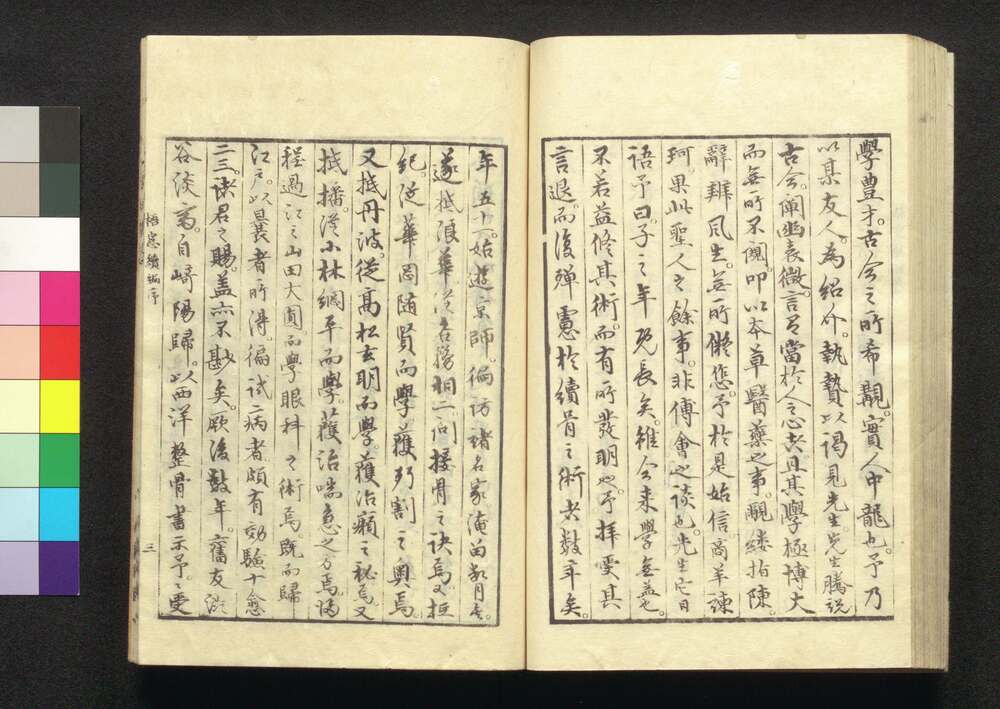 學豊才。古今之所希覯。實人中龍也。予乃
以某友人。為紹介。執贄以謁見先生。先生騰説
古今。闡幽表微。言言當於人之心。且其學極博大
而無所不覗。叩以本草醫藥之事。覼縷指陳。
辭辨風生。無所
予於是始信。
珂。果此聖人之餘事。非傅會之談也。先生一日
語予曰。子之年既長矣。雖今來學無益也。
不若益修其術。而有所發明也。予拜受其
言退。而後殫慮於續骨之術者數年矣。
年五十一。始遊京師。徧訪諸名家淹留數月
遂抵浪華從各務相二問接骨之訣焉。又
紀。從華岡隨賢而學獲刳割之奥焉。
又抵丹波。從高松玄明而學獲治癩之秘焉。又
抵播。從小林綱平而學。獲治喘急之方焉。
程過江之山田大圓。而學眼科之術焉既而歸
江戶。以曩者所得。徧試病者。頗有効驗十愈
二三。諸君之賜。蓋亦不尠矣。厥後數年。舊友澁
谷淡齋。自﨑陽歸。以西洋整骨書示予。予受
續編序
三